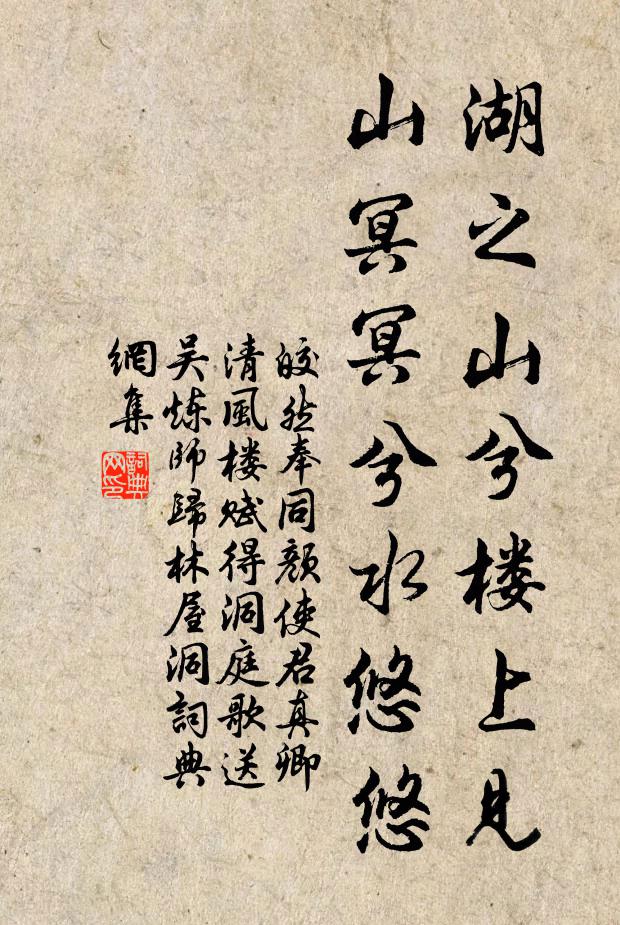 湖之山兮楼上见
山冥冥兮水悠悠
皎然奉同颜使君真卿
清風楼赋得洞庭歌送
吴炼师歸林屋洞詞典
網集
詞典
网印